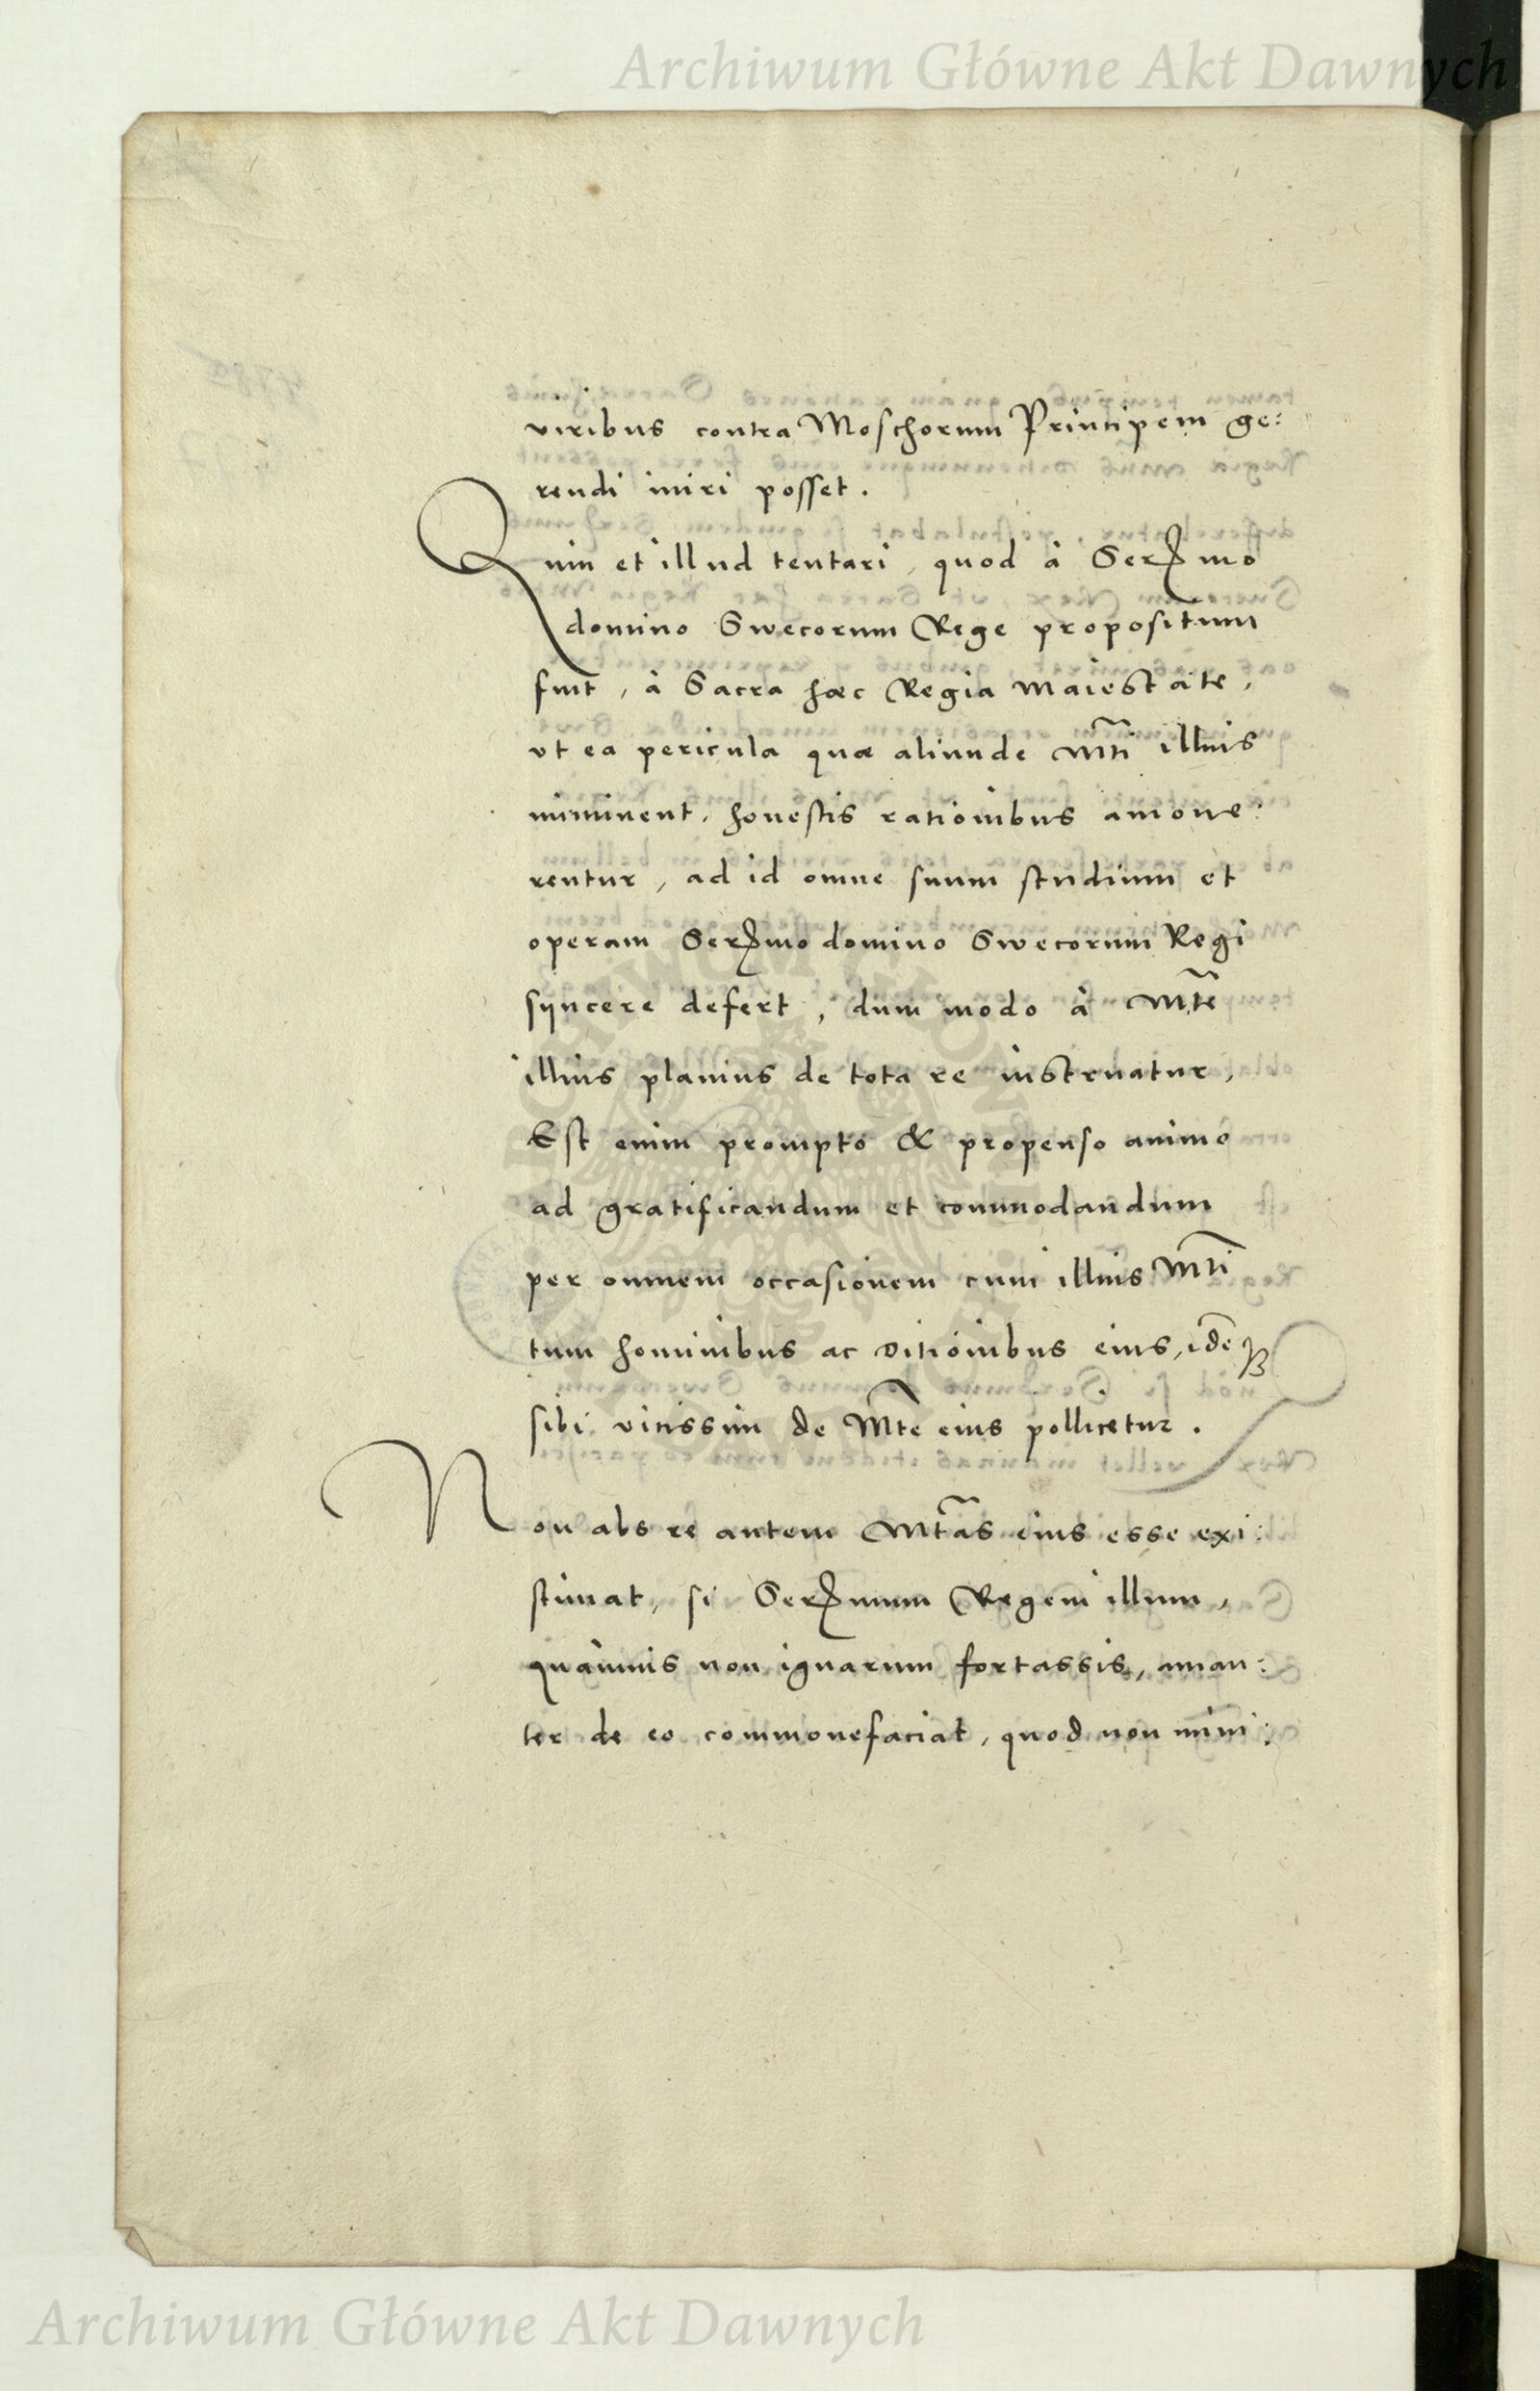 Archiwum Główne Akt Dawnych
viribus contra Moschorum Principem ge:
rendi iniri posset.
Quin et illud tentari, quod à Serᵐᵒ
domino Swecorum Rege propositum
fuit, à Sacra hac Regia Maiestate,
vt ea pericula quæ aliunde Mti illius
imminent, honestis rationibus amoue:
rentur, ad id omne suum studium et
operam Serᵐᵒ domino Swecorum Regi
syncere defert, dum modo à Mte
illius planius de tota re instruatur,
Est enim prompto & propenso animo
ad gratificandum et commodandum
per omnem occasionem cum illius Mti
tum hominibus ac ditionibus eius, idē
sibi vicissim de Mte eius pollicetur.
Non abs re autem Mtas eius esse exi:
stimat, si Serᵐum Regem illum,
quamuis non ignarum fortassis, aman:
ter de eo commonefaciat, quod non mini:
Archiwum Główne Akt Dawnych